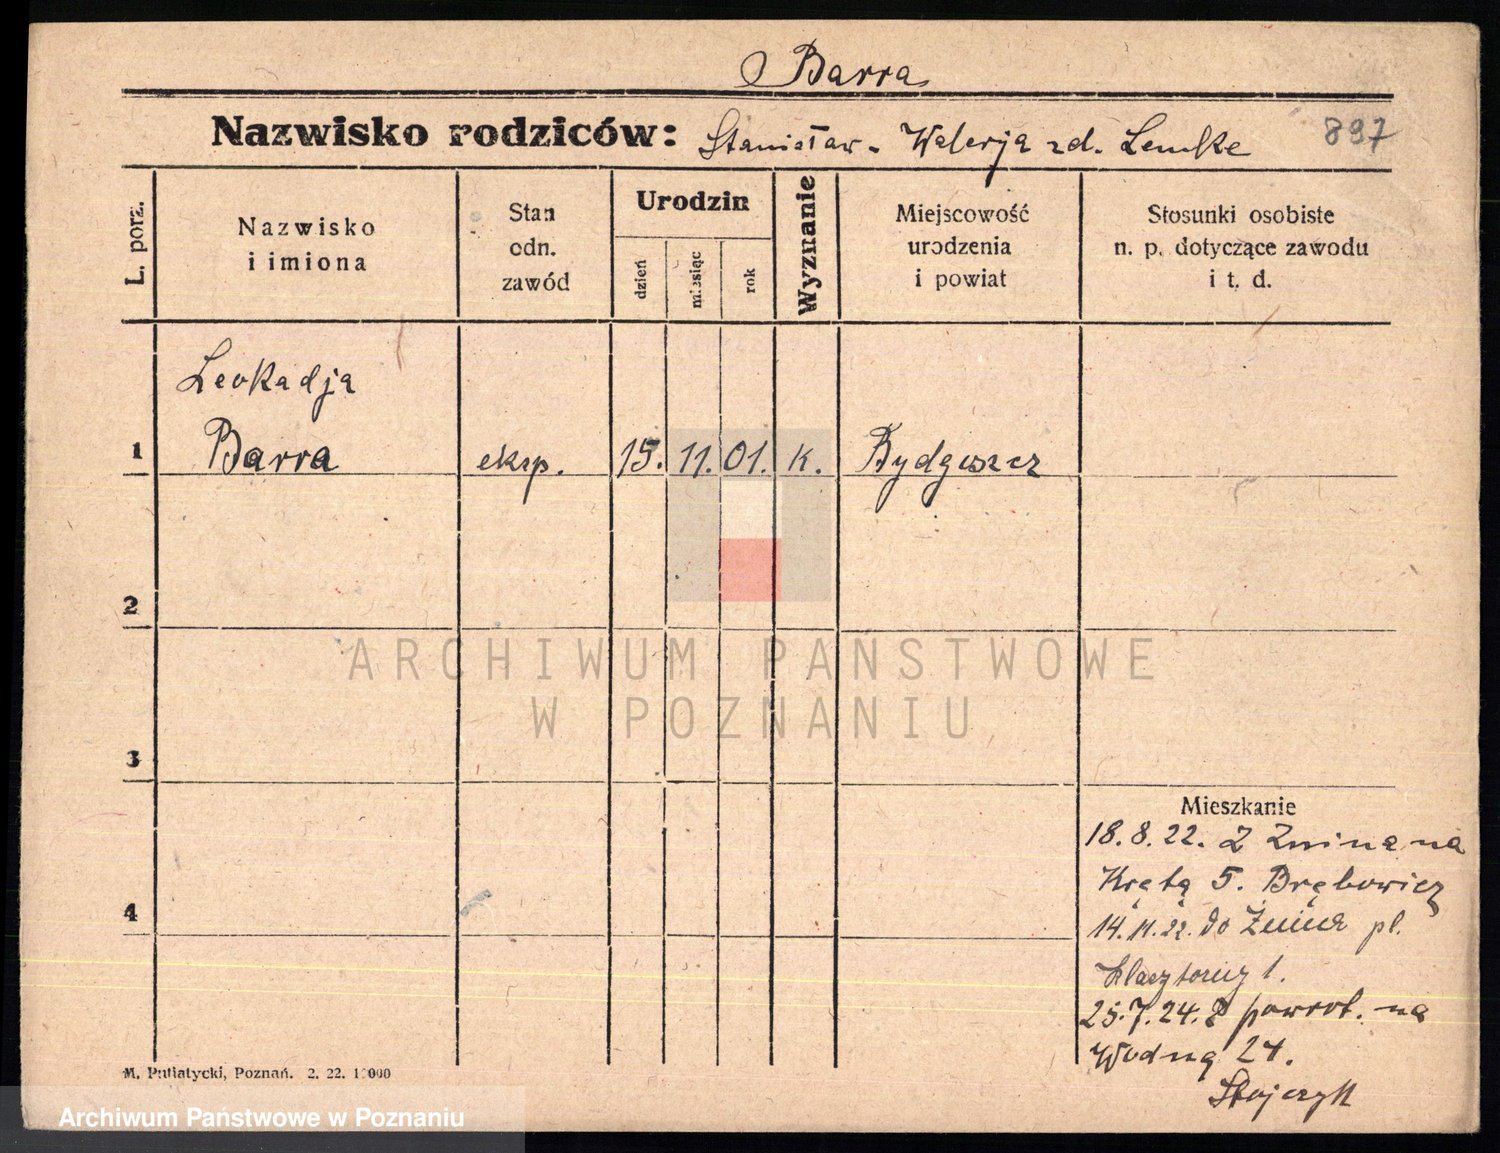 Barra
Nazwisko rodziców: Stanisław - Walerja zd. Lemke 897
L. porz.
Nazwisko
i imiona
Stan
odn.
zawód
Urodzin
dzień
miesiąc
rok
Wyznanie
Miejscowość
urodzenia
i powiat
Stosunki osobiste
n. p. dotyczące zawodu
i t. d.
Leokadja
1 Barra eksp. 15. 11. 01. k. Bydgoszcz
2
3
4
ARCHIWUM PAŃSTWOWE
W POZNANIU
Mieszkanie
18.8.22. z Żnina na
Krętą 5.
14.11.22. do Żnina pl.
1.
25.7.24. z powrot. na
Wodną 24.
M. Putiatycki, Poznań. 2. 22. 10000
Archiwum Państwowe w Poznaniu